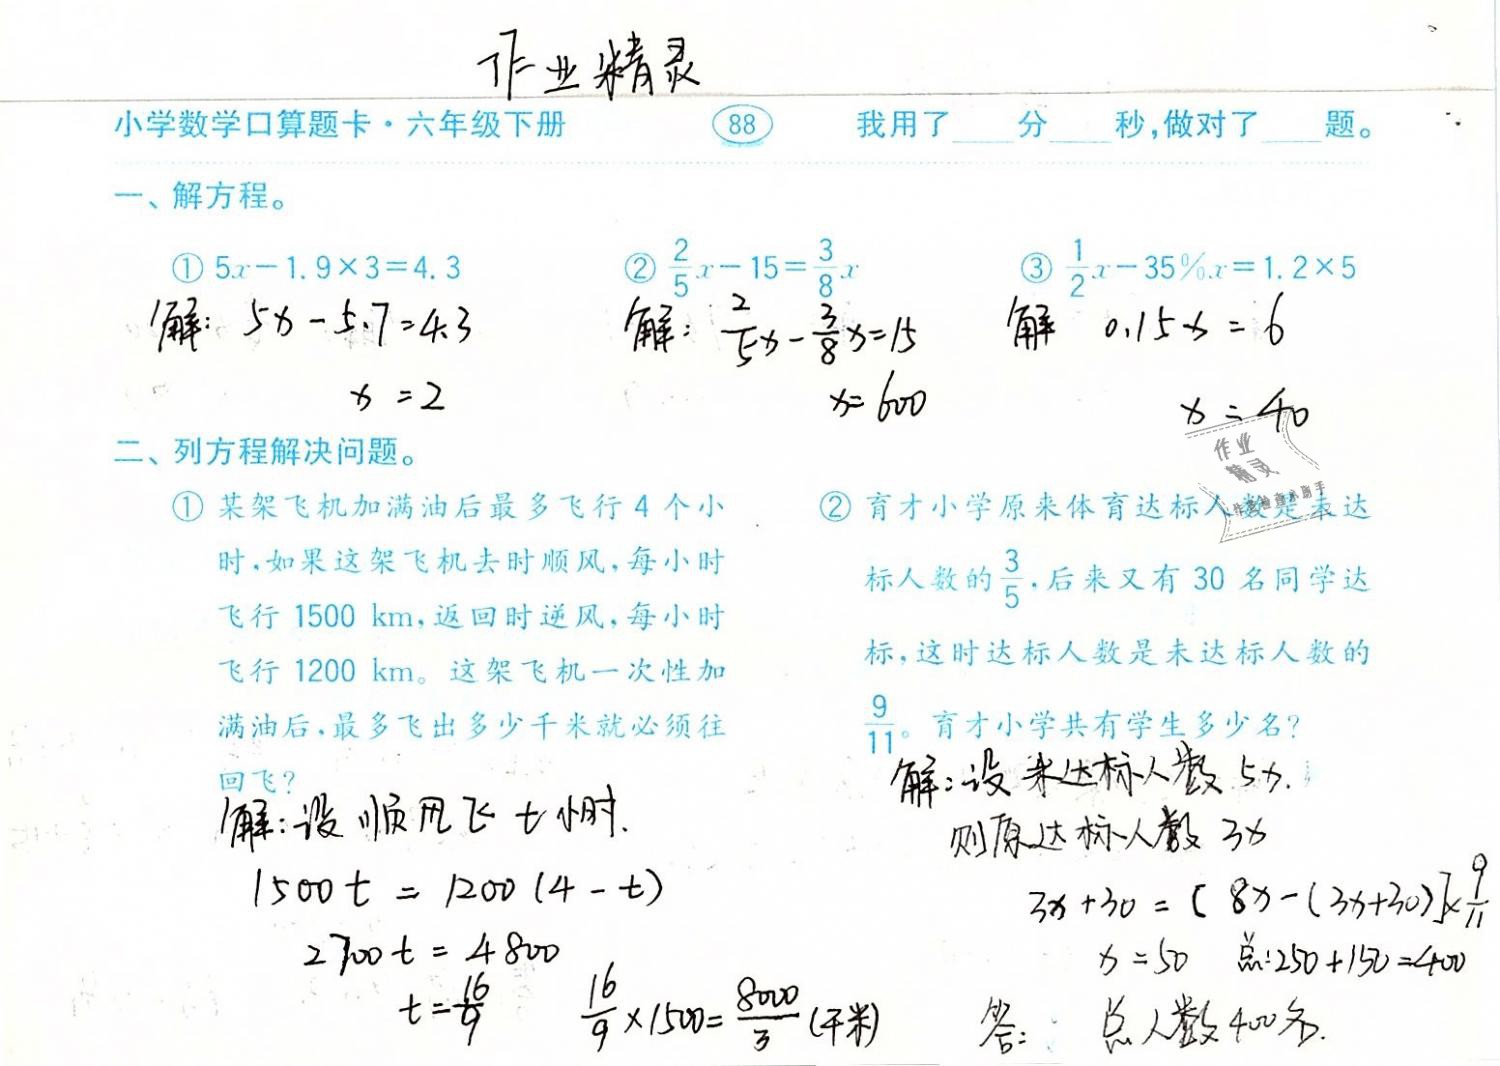 作业精灵
小学数学口算题卡·六年级下册 88 我用了____分____秒,做对了____题。
一、解方程。
① 5x－1.9×3＝4.3 ② 2/5x－15＝3/8x ③ 1/2x－35%x＝1.2×5
解: 5x－5.7＝4.3 解: 2/5x－3/8x＝15 解 0.15x＝6
x＝2 x＝600 x＝40
作业
精灵
二、列方程解决问题。
① 某架飞机加满油后最多飞行 4 个小
时,如果这架飞机去时顺风,每小时
飞行 1500 km,返回时逆风,每小时
飞行 1200 km。这架飞机一次性加
满油后,最多飞出多少千米就必须往
回飞?
解:设顺风飞 t 小时.
1500t＝1200(4－t)
2700t＝4800
t＝16/9 16/9×1500＝8000/3(千米)
② 育才小学原来体育达标人数是未达
标人数的3/5,后来又有 30 名同学达
标,这时达标人数是未达标人数的
9/11。育才小学共有学生多少名?
解:设未达标人数5x.
则原达标人数3x
3x+30＝[8x－(3x+30)]×9/11
x＝50 总:250+150＝400
答: 总人数400名.